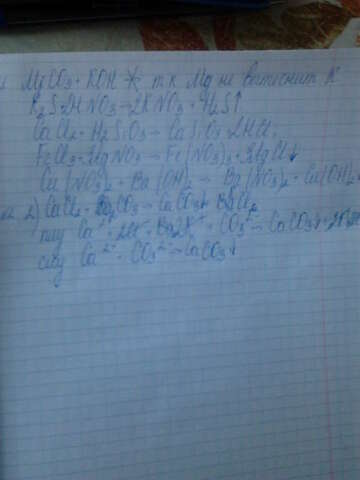 MgCO3 + KOH ⇸ т.к. Mg не вытеснит К
K2S + 2HNO3 → 2KNO3 + H2S↑
CaCl2 + H2SiO3 → CaSiO3 + 2HCl
FeCl3 + 3AgNO3 → Fe(NO3)3 + 3AgCl↓
Cu(NO3)2 + Ba(OH)2 → Ba(NO3)2 + Cu(OH)2
2) CaCl2 + CO3 → CaCO3↓ BaCl2
пиу Ca2+ + 2Cl- + 2K+ + CO3 2- → CaCO3↓ +
сиу Ca2+ + CO3 2- → CaCO3↓